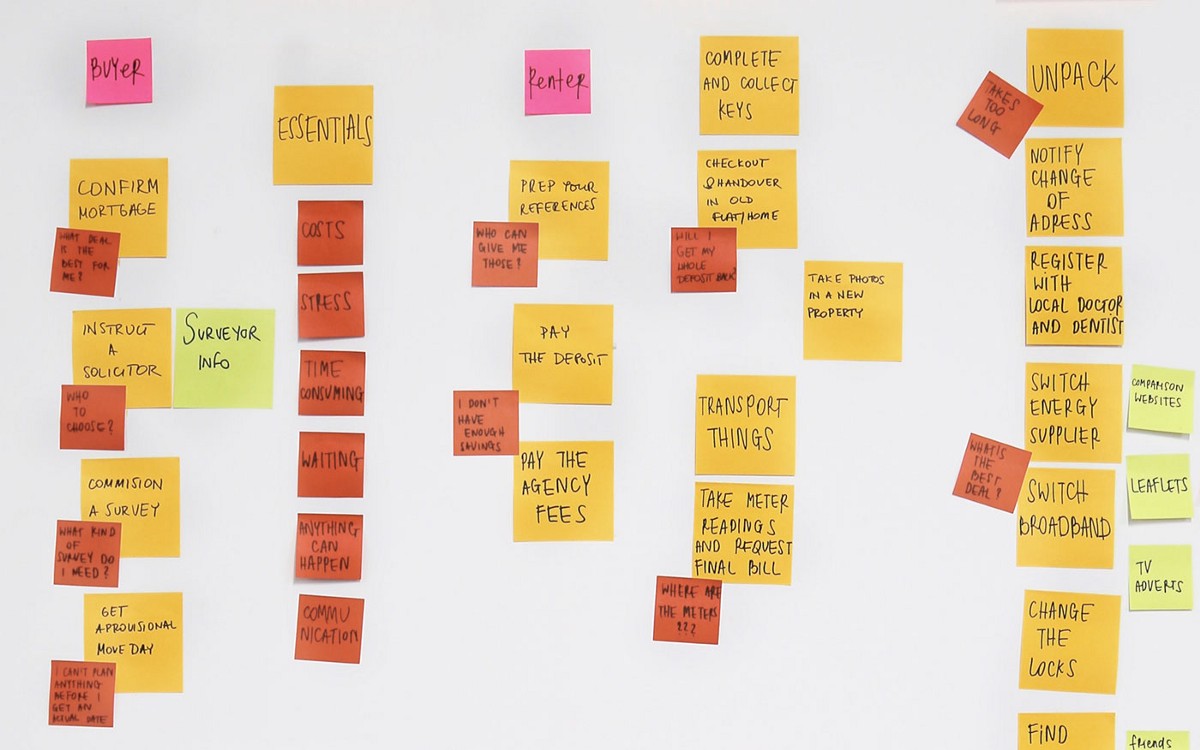 BUYER
CONFIRM
MORTGAGE
WHAT DEAL
IS THE
BEST FOR
ME?
INSTRUCT
A
SOLICITOR
SURVEYOR
INFO
WHO
TO
CHOOSE?
COMMISION
A SURVEY
WHAT KIND
OF
SURVEY DO
I NEED?
GET
A PROVISIONAL
MOVE DAY
I CAN'T PLAN
ANYTHING
BEFORE I
GET AN
DATE
ESSENTIALS
COSTS
STRESS
TIME
CONSUMING
WAITING
ANYTHING
CAN
HAPPEN
COMMU
NICATION
Renter
PREP YOUR
REFERENCES
WHO CAN
GIVE ME
THOSE?
PAY
THE DEPOSIT
I DON'T
HAVE
ENOUGH
SAVINGS
PAY THE
AGENCY
FEES
COMPLETE
AND COLLECT
KEYS
CHECKOUT
& HANDOVER
IN OLD
FLAT/HOME
WILL I
GET MY
WHOLE
DEPOSIT BACK?
TAKE PHOTOS
IN A NEW
PROPERTY
TRANSPORT
THINGS
TAKE METER
READINGS
AND REQUEST
FINAL BILL
WHERE ARE
THE METERS
???
UNPACK
TAKES
TOO
LONG
NOTIFY
CHANGE
OF
ADRESS
REGISTER
WITH
LOCAL DOCTOR
AND DENTIST
SWITCH
ENERGY
SUPPLIER
COMPARISON
WEBSITES
WHAT'S
THE
BEST
DEAL?
SWITCH
BROADBAND
LEAFLETS
TV
ADVERTS
CHANGE
THE
LOCKS
FIND
friends